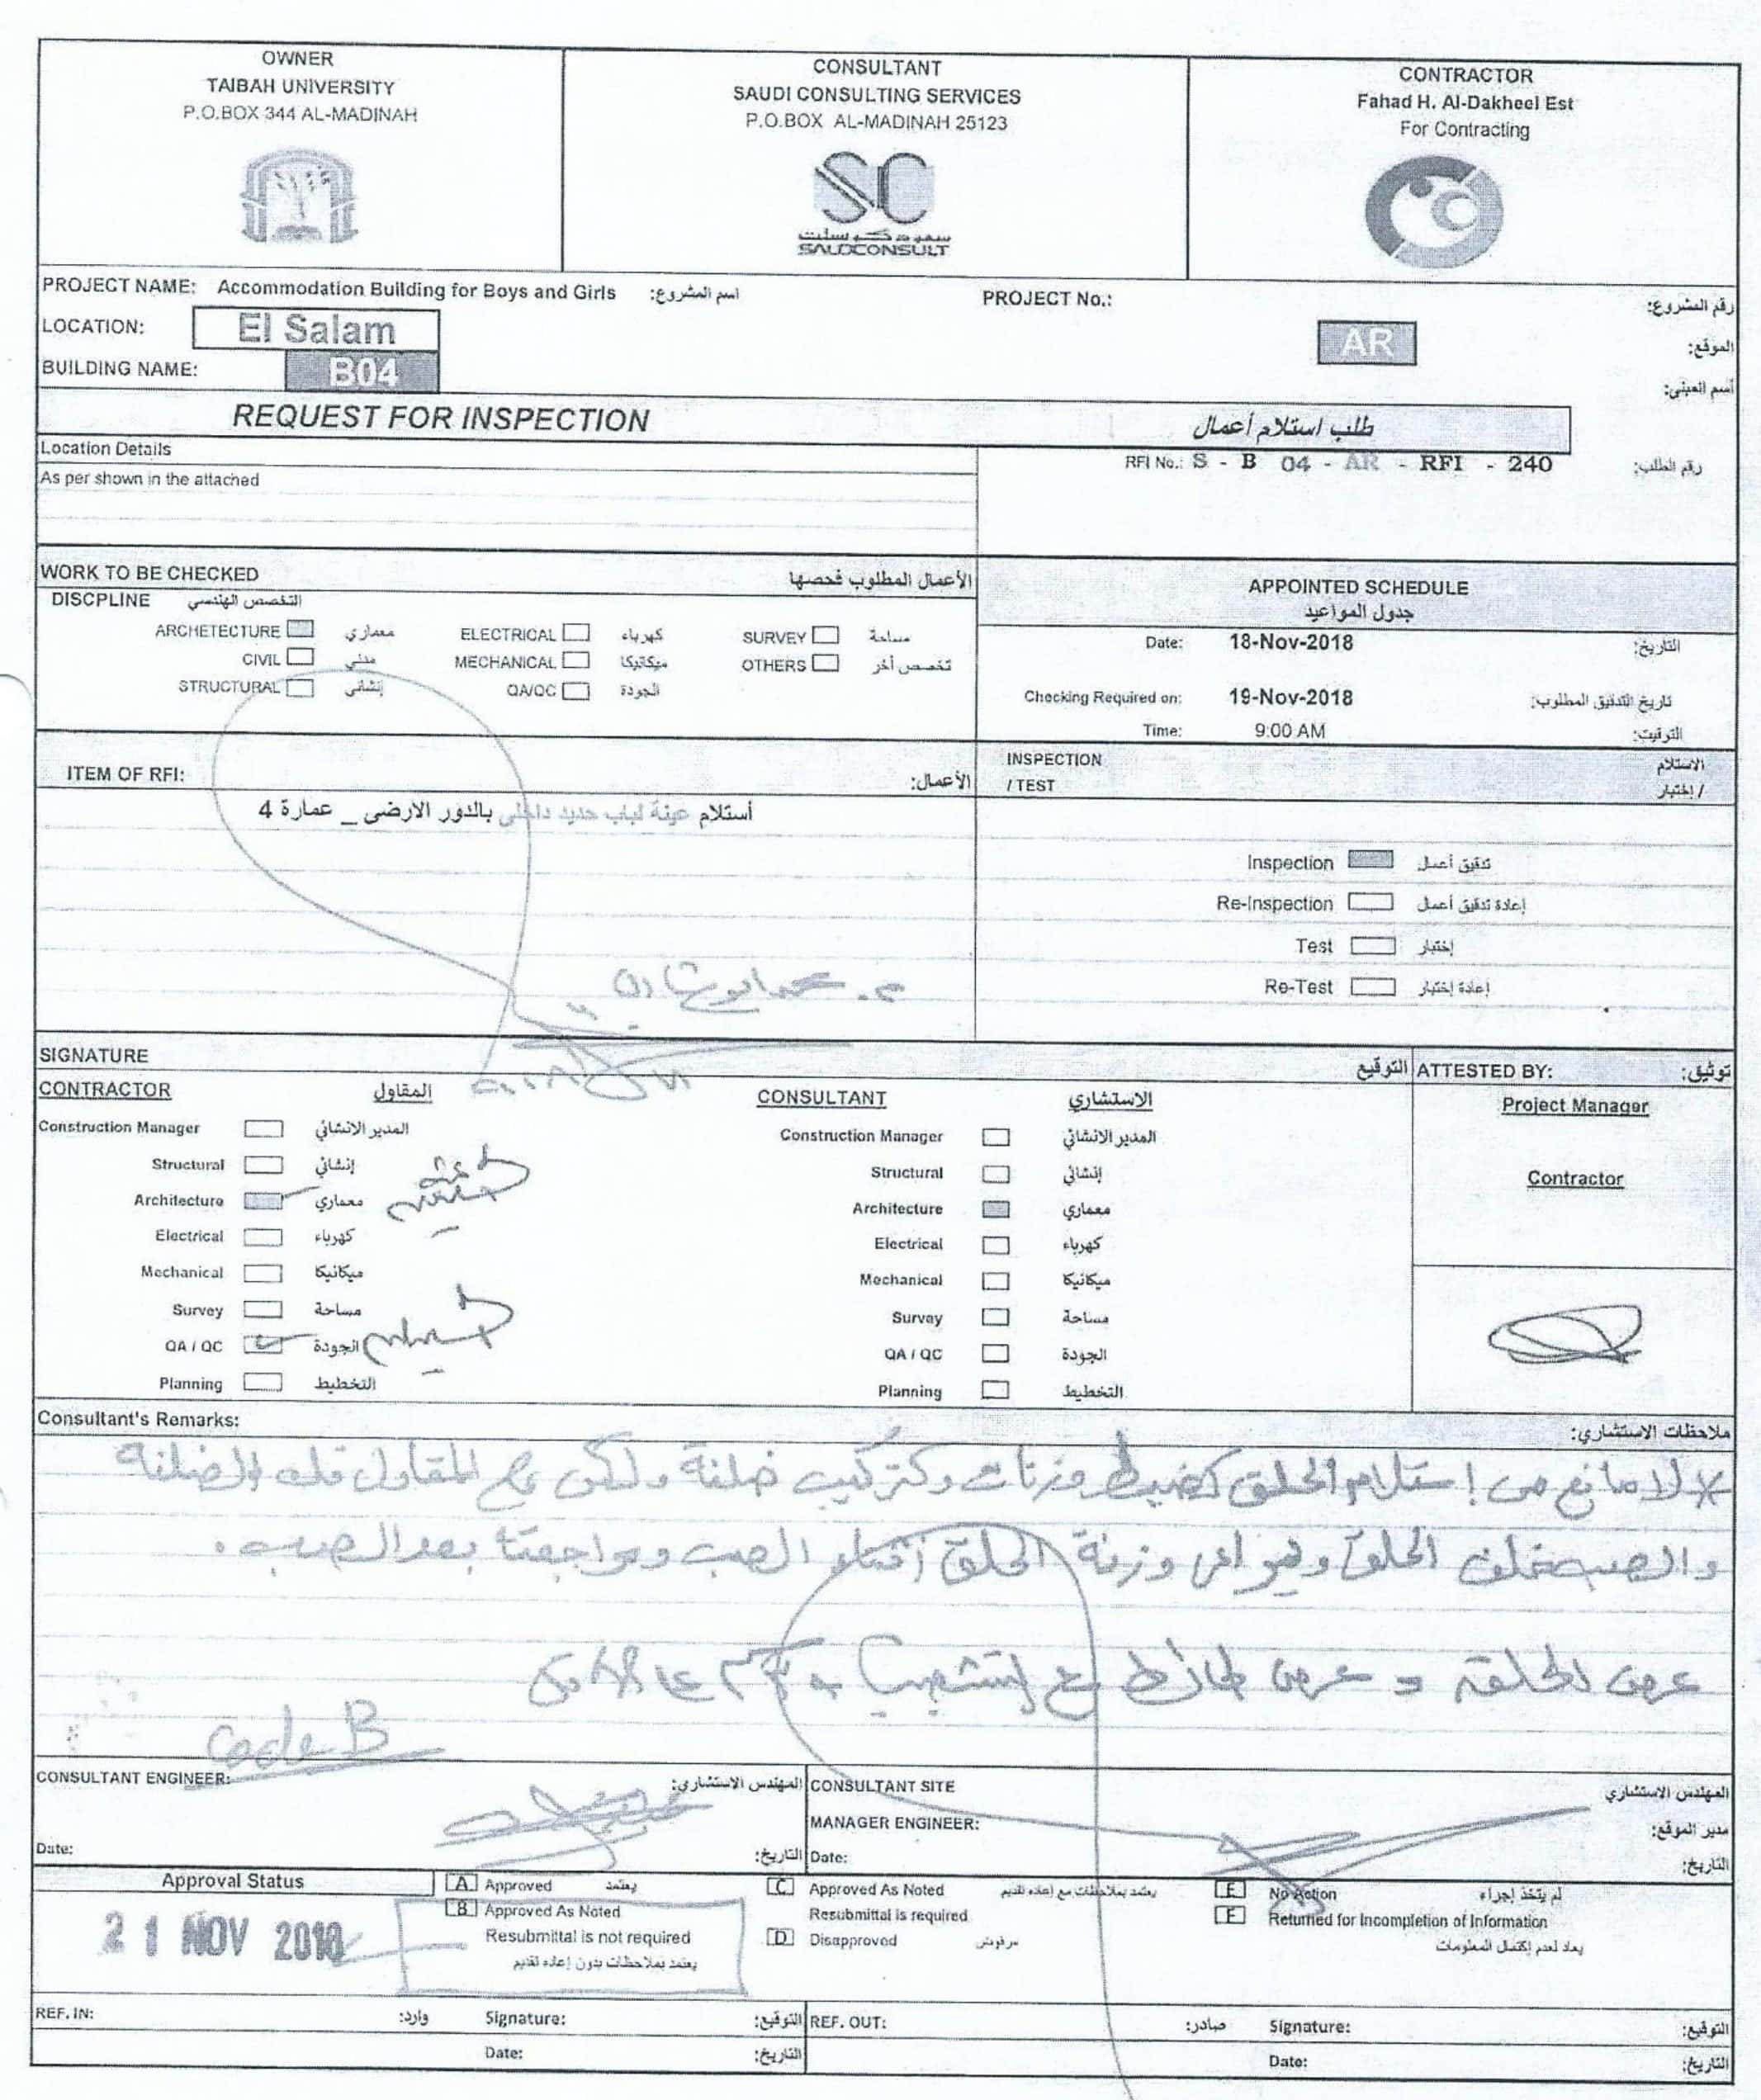 OWNER
TAIBAH UNIVERSITY
P.O.BOX 344 AL-MADINAH
CONSULTANT
SAUDI CONSULTING SERVICES
P.O.BOX AL-MADINAH 25123
سعودكونسلت
SAUDCONSULT
CONTRACTOR
Fahad H. Al-Dakheel Est
For Contracting
PROJECT NAME: Accommodation Building for Boys and Girls اسم المشروع:
PROJECT No.: رقم المشروع:
LOCATION: El Salam
AR الموقع:
BUILDING NAME: B04
أسم المبنى:
REQUEST FOR INSPECTION
طلب استلام أعمال
Location Details
RFI No.: S - B 04 - AR - RFI - 240 رقم الطلب:
As per shown in the attached
WORK TO BE CHECKED الأعمال المطلوب فحصها
DISCPLINE التخصص الهندسي
ARCHETECTURE معماري ELECTRICAL كهرباء SURVEY مساحة
CIVIL مدني MECHANICAL ميكانيكا OTHERS تخصص أخر
STRUCTURAL إنشائي QA/QC الجودة
APPOINTED SCHEDULE
جدول المواعيد
Date: 18-Nov-2018 التاريخ:
Checking Required on: 19-Nov-2018 تاريخ التدقيق المطلوب:
Time: 9:00 AM التوقيت:
ITEM OF RFI: الأعمال:
INSPECTION / TEST الاستلام / إختبار
أستلام عينة لباب حديد داخلى بالدور الارضى _ عمارة 4
Inspection تدقيق أعمال
Re-Inspection إعادة تدقيق أعمال
Test إختبار
Re-Test إعادة إختبار
SIGNATURE التوقيع
ATTESTED BY: توثيق:
CONTRACTOR المقاول
Construction Manager المدير الانشائي
Structural إنشائي
Architecture معماري
Electrical كهرباء
Mechanical ميكانيكا
Survey مساحة
QA / QC الجودة
Planning التخطيط
CONSULTANT الاستشاري
Construction Manager المدير الانشائي
Structural إنشائي
Architecture معماري
Electrical كهرباء
Mechanical ميكانيكا
Survey مساحة
QA / QC الجودة
Planning التخطيط
Project Manager
Contractor
Consultant's Remarks: ملاحظات الاستشاري:
* لا مانع من إستلام الحلق كضبط وزنات وتركيب ضلفة ولكن مع المقاول فك الضلفة
والصب خلف الحلق ويراعى وزنة الحلق أثناء الصب ومراجعتة بعد الصب.
عرض الحلقة = عرض الحائط مع
Code B
CONSULTANT ENGINEER: المهندس الاستشاري:
Date: التاريخ:
CONSULTANT SITE المهندس الاستشاري
MANAGER ENGINEER: مدير الموقع:
Date: التاريخ:
Approval Status
21 NOV 2018
A Approved يعتمد
B Approved As Noted
Resubmittal is not required
يعتمد بملاحظات بدون إعاده تقديم
C Approved As Noted يعتمد بملاحظات مع إعاده تقديم
Resubmittal is required
D Disapproved مرفوض
E No Action لم يتخذ إجراء
F Returned for Incompletion of Information
يعاد لعدم إكتمال المعلومات
REF. IN: وارد: Signature: التوقيع:
Date: التاريخ:
REF. OUT: صادر: Signature: التوقيع:
Date: التاريخ: